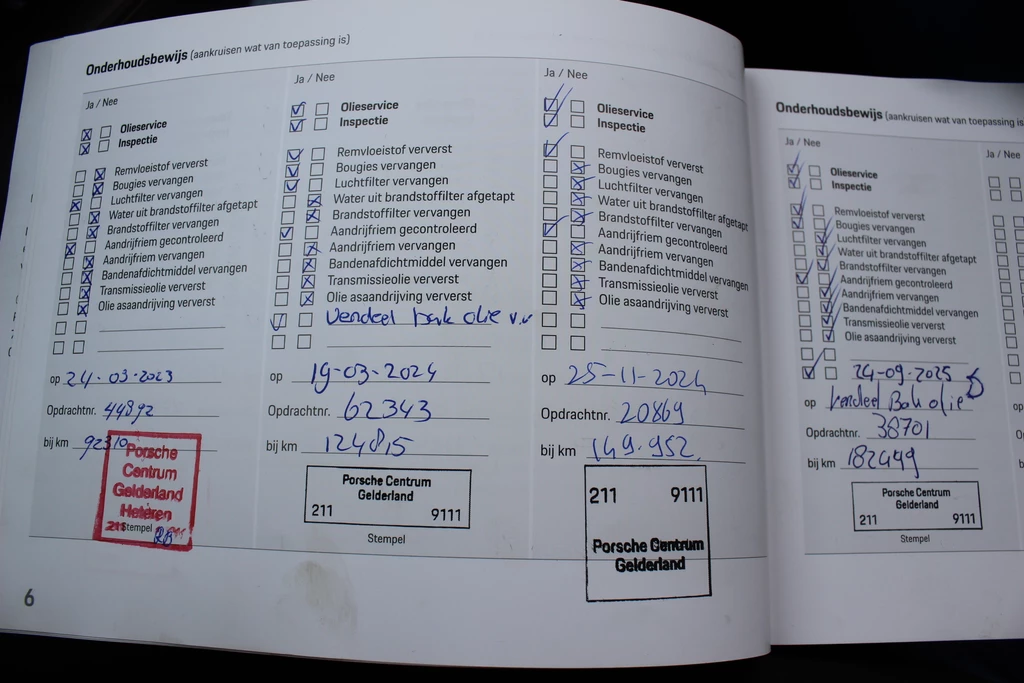 Onderhoudsbewijs (aankruisen wat van toepassing is)
Ja / Nee
Olieservice
Inspectie
Remvloeistof ververst
Bougies vervangen
Luchtfilter vervangen
Water uit brandstoffilter afgetapt
Brandstoffilter vervangen
Aandrijfriem gecontroleerd
Aandrijfriem vervangen
Bandenafdichtmiddel vervangen
Transmissieolie ververst
Olie asaandrijving ververst
op 24-03-2023
Opdrachtnr. 44892
bij km 92310
Porsche
Centrum
Gelderland
Heteren
211
Stempel
6
Ja / Nee
Olieservice
Inspectie
Remvloeistof ververst
Bougies vervangen
Luchtfilter vervangen
Water uit brandstoffilter afgetapt
Brandstoffilter vervangen
Aandrijfriem gecontroleerd
Aandrijfriem vervangen
Bandenafdichtmiddel vervangen
Transmissieolie ververst
Olie asaandrijving ververst
Verdeel bak olie v.v
op 19-03-2024
Opdrachtnr. 62343
bij km 124815
Porsche Centrum
Gelderland
211 9111
Stempel
Ja / Nee
Olieservice
Inspectie
Remvloeistof ververst
Bougies vervangen
Luchtfilter vervangen
Water uit brandstoffilter afgetapt
Brandstoffilter vervangen
Aandrijfriem gecontroleerd
Aandrijfriem vervangen
Bandenafdichtmiddel vervangen
Transmissieolie ververst
Olie asaandrijving ververst
op 25-11-2024
Opdrachtnr. 20869
bij km 149.952
211 9111
Porsche Centrum
Gelderland
Onderhoudsbewijs (aankruisen wat van toepassing is
Ja / Nee
Olieservice
Inspectie
Remvloeistof ververst
Bougies vervangen
Luchtfilter vervangen
Water uit brandstoffilter afgetapt
Brandstoffilter vervangen
Aandrijfriem gecontroleerd
Aandrijfriem vervangen
Bandenafdichtmiddel vervangen
Transmissieolie ververst
Olie asaandrijving ververst
24-09-2025
op Verdeel Bak olie
Opdrachtnr. 38701
bij km 182449
Porsche Centrum
Gelderland
211 9111
Stempel
Ja / Nee
op
Op
bij